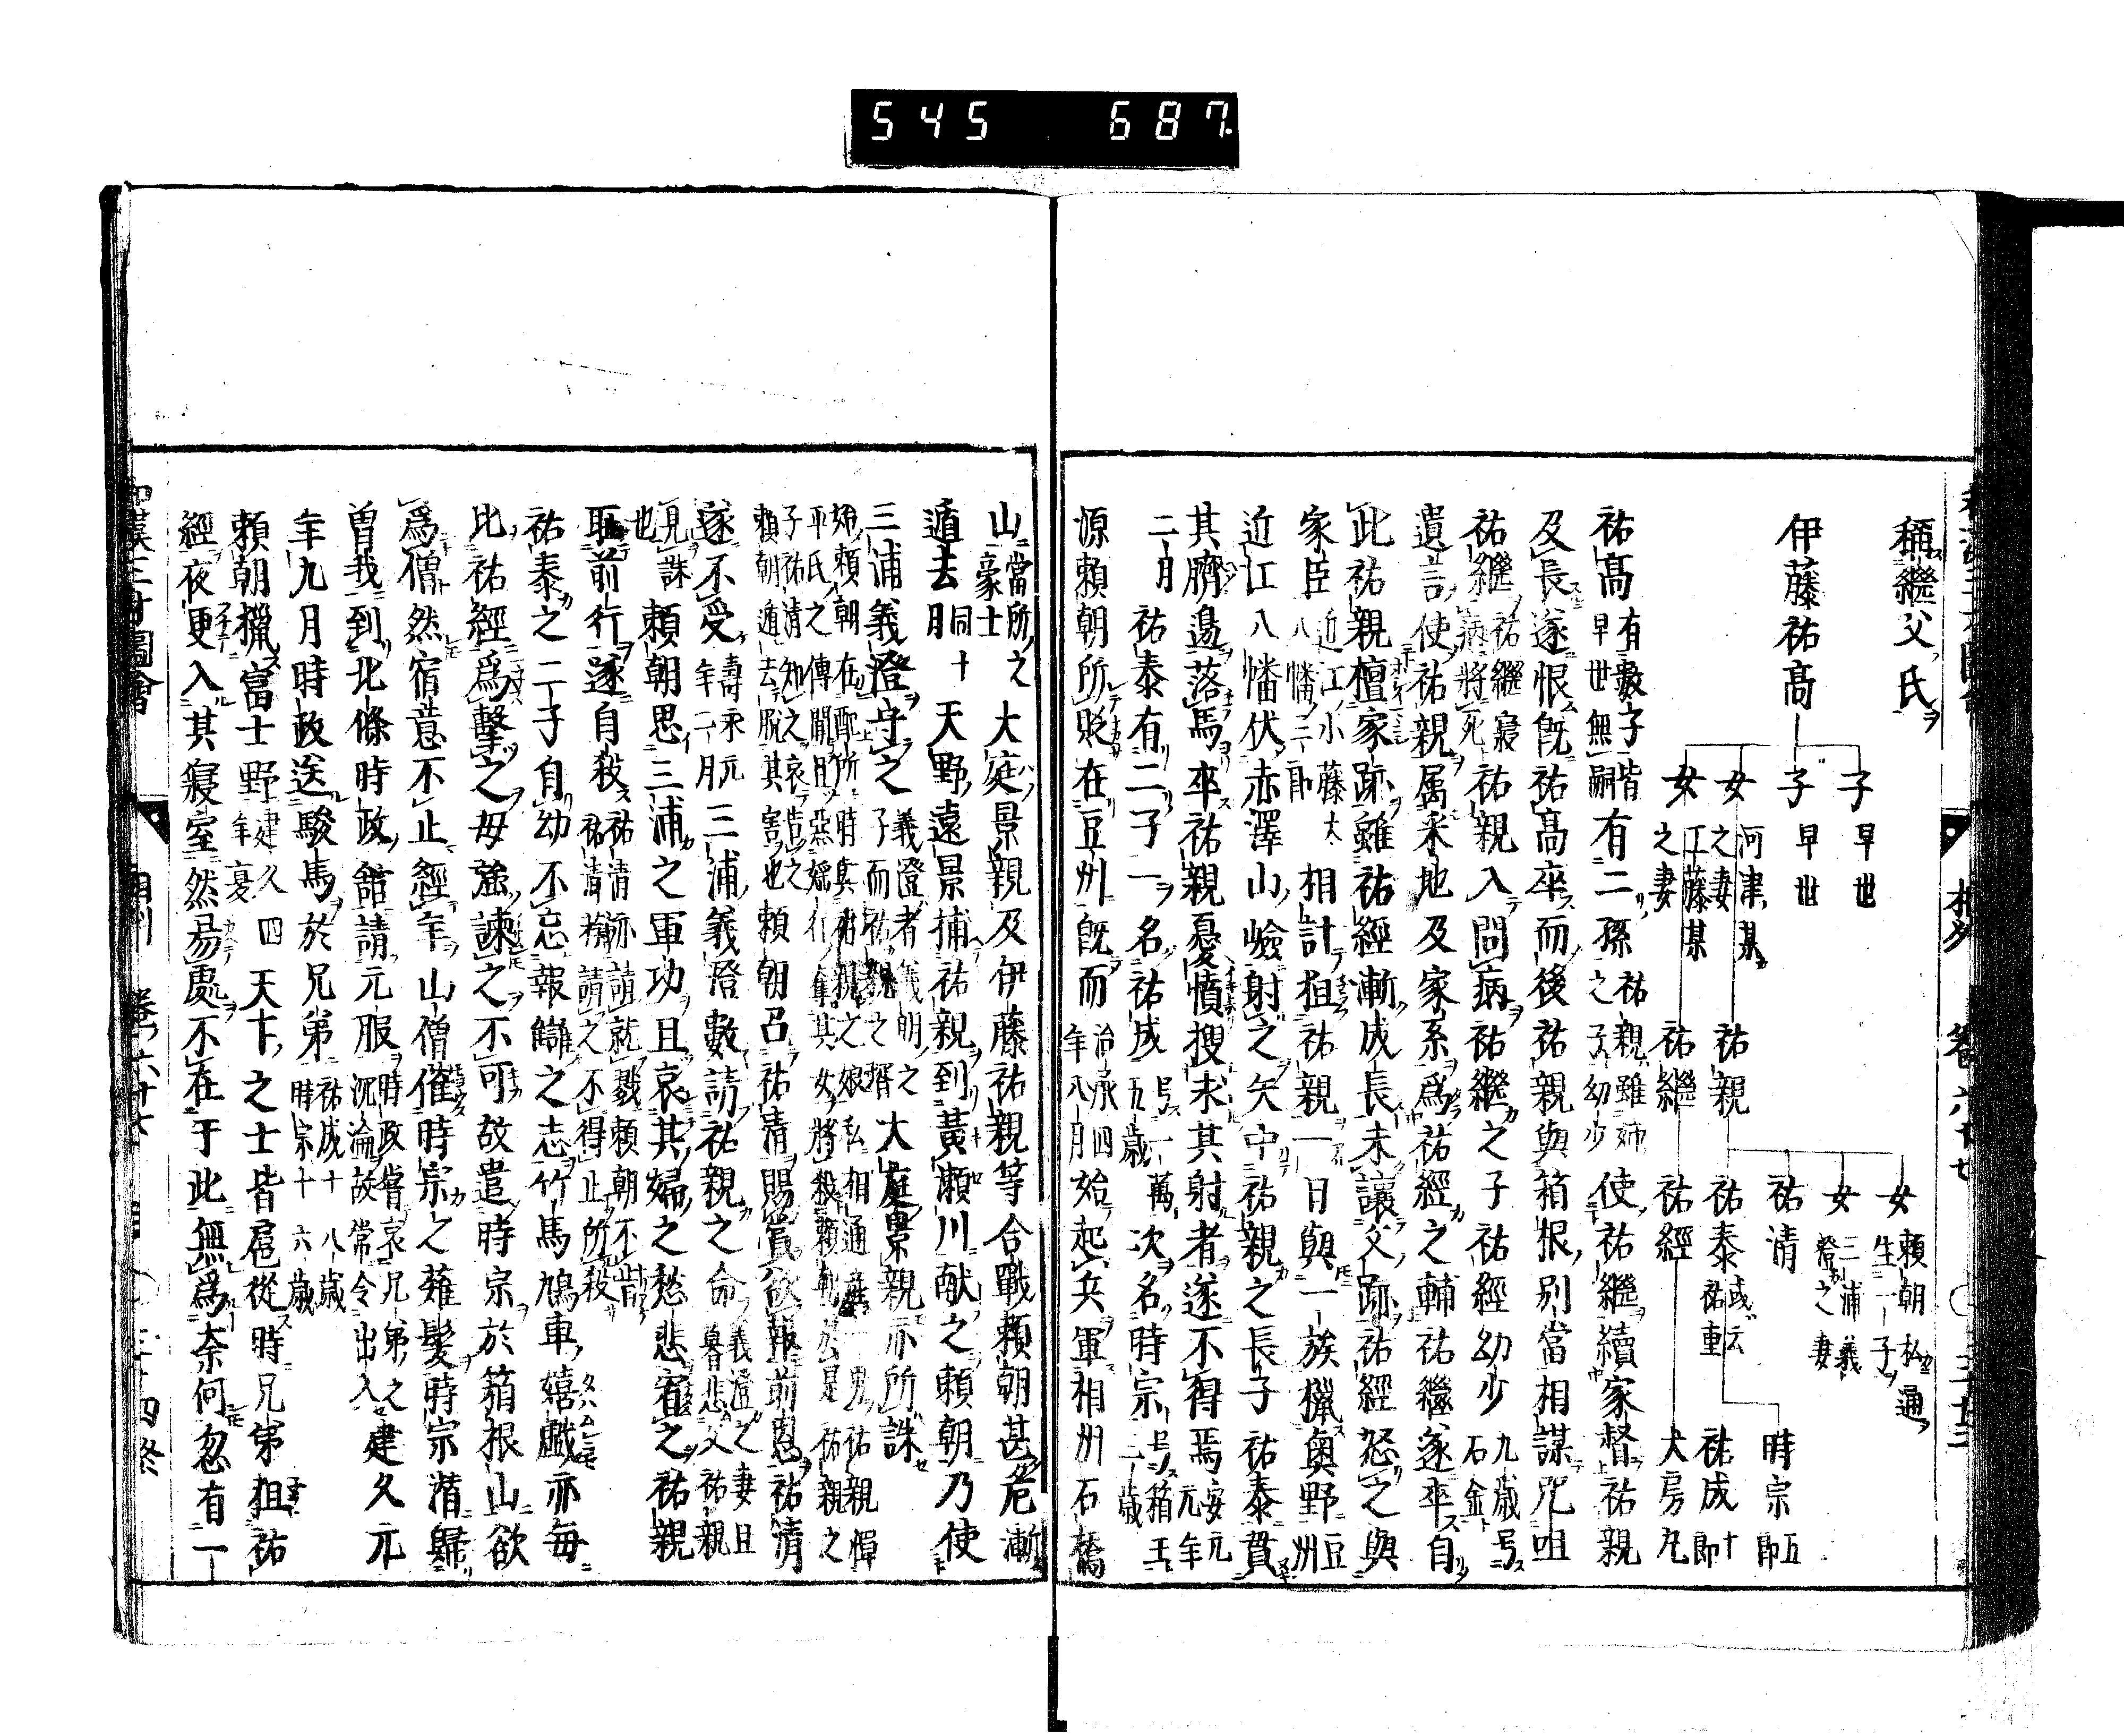 545 687
稱繼父氏
伊藤祐高
子早世
子早世
女河津某之妻
女工藤某之妻
祐親
祐繼
女頼朝私通生一子
女三浦義澄之妻
祐清
祐泰或云祐重
祐經
時宗五郎
祐成十郎
犬房丸
祐高有數子皆早世無嗣有二孫祐親雖姉之子幼少使祐繼續家督祐親
及長遂恨既祐高卒而後祐親與箱根別當相謀咒咀
祐繼祐繼寢病將死祐親入問病祐繼之子祐經幼少九歳号石金
遺言使祐親属釆地及家系爲祐經之輔祐繼遂卒自
此祐親擅家跡雖祐經漸成長未讓父跡祐經怒之與
家臣近江小藤太八幡三郎相計狙祐親一日與一族獵奥野豆州
近江八幡伏赤澤山嶮射之矢中祐親之長子祐泰貫
其臍邊落馬卒祐親憂憤搜求其射者遂不得焉安元元年
二月祐泰有二子一名祐成号一萬五歳次名時宗号箱王三歳
源頼朝所貶在豆州既而治承四年八月始起兵軍相州石橋
山當所之豪士大庭景親及伊藤祐親等合戰頼朝甚危漸
遁去同月十天野遠景捕祐親到黄瀬川献之頼朝乃使
三浦義澄守之義澄者義明之子而祐親之壻大庭景親亦所誅
頼朝遁去脱其害也頼朝召祐清賜賞欲報前恩祐清
遂不受壽永元年二月三浦義澄數請祐親之命義澄之妻且暮悲父祐親
見誅也頼朝思三浦之軍功且哀其婦之愁悲宥之祐親
耻前行遂自殺祐清亦請就戮頼朝不肯祐清頻請之不得止所殺
祐泰之二子自幼不忘報讎之志竹馬鳩車嬉戲亦毎
比祐經爲擊之母強諫之不可故遣時宗於箱根山欲
爲僧然宿意不止經年山僧催時宗之薙髮時宗潜歸
曽我到北條時政舘請元服時政嘗哀兄弟之沉淪故常令出入建久元
年九月時政送駿馬於兄弟祐成十八歳時宗十六歳
頼朝獵富士野建久四年夏天下之士皆扈從時兄弟狙祐
經夜更入其寢室然易處不在于此無爲奈何忽有一